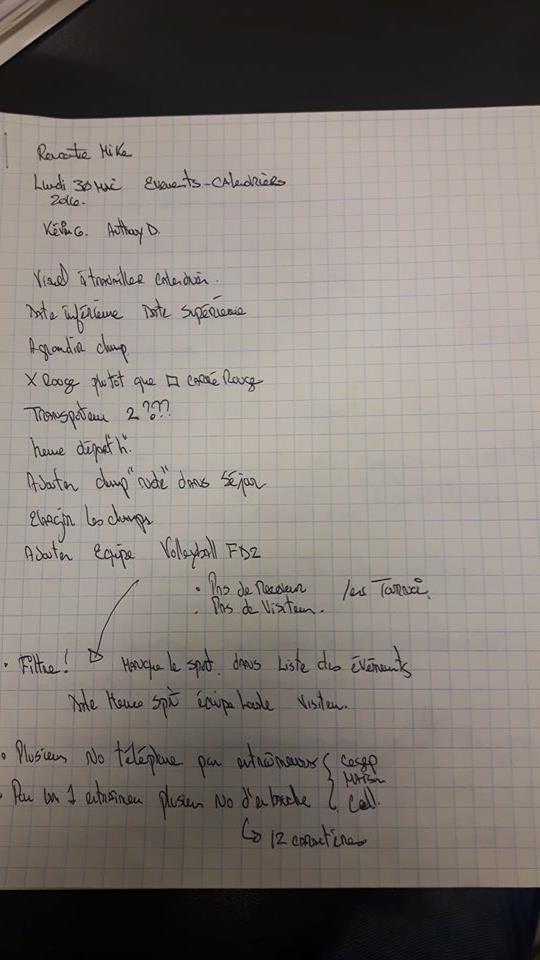 Rencontre Mike
Lundi 30 Mai Events-Calendriers
2016.
Kévin G. Anthony D.
Visuel à travailler calendrier.
Date inférieure Date supérieure
Agrandir champ
X Rouge plutôt que □ carré Rouge
Transporteur 2 ???
heure départ "h".
Ajouter champ "note" dans Séjour
Élargir Les champs
Ajouter Equipe Volleyball FD2
• Pas de Receveur
• Pas de Visiteur.
• Filtre! Manque le sport dans Liste des évèments
Date Heure Sport équipe locale Visiteur.
• Plusieurs No téléphone par entraîneurs { Cegep
Maison
• Pour un 1 entraîneur plusieurs No d'embauche { Cell.
↳ 12 caractères